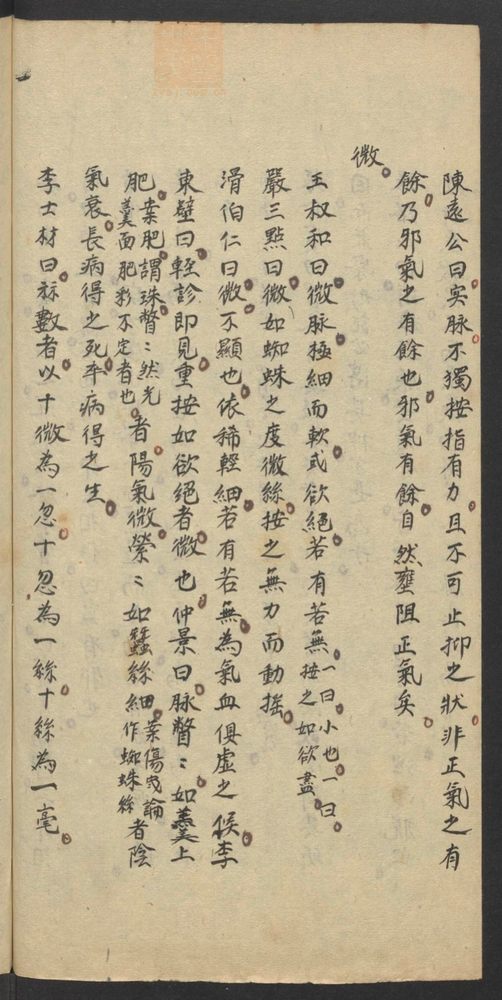 陳遠公曰实脉不獨按指有力且不可止抑之狀非正氣之有
餘乃邪氣之有餘也邪氣有餘自然壅阻正氣矣
微
王叔和曰微脉極細而軟或欲絕若有若無一曰小也一曰按之如欲盡
嚴三點曰微如蜘蛛之度微絲按之無力而動搖
滑伯仁曰微不顯也依稀輕細若有若無為氣血俱虛之候李
東壁曰輕診即見重按如欲絕者微也仲景曰脉瞥〻如羹上
肥案肥謂珠瞥〻然光羹面肥彩不定者也者陽氣微縈〻如蠶絲細案傷寒論作蜘蛛絲者陰
氣衰長病得之死卒病得之生
李士材曰祘數者以十微為一忽十忽為一絲十絲為一毫